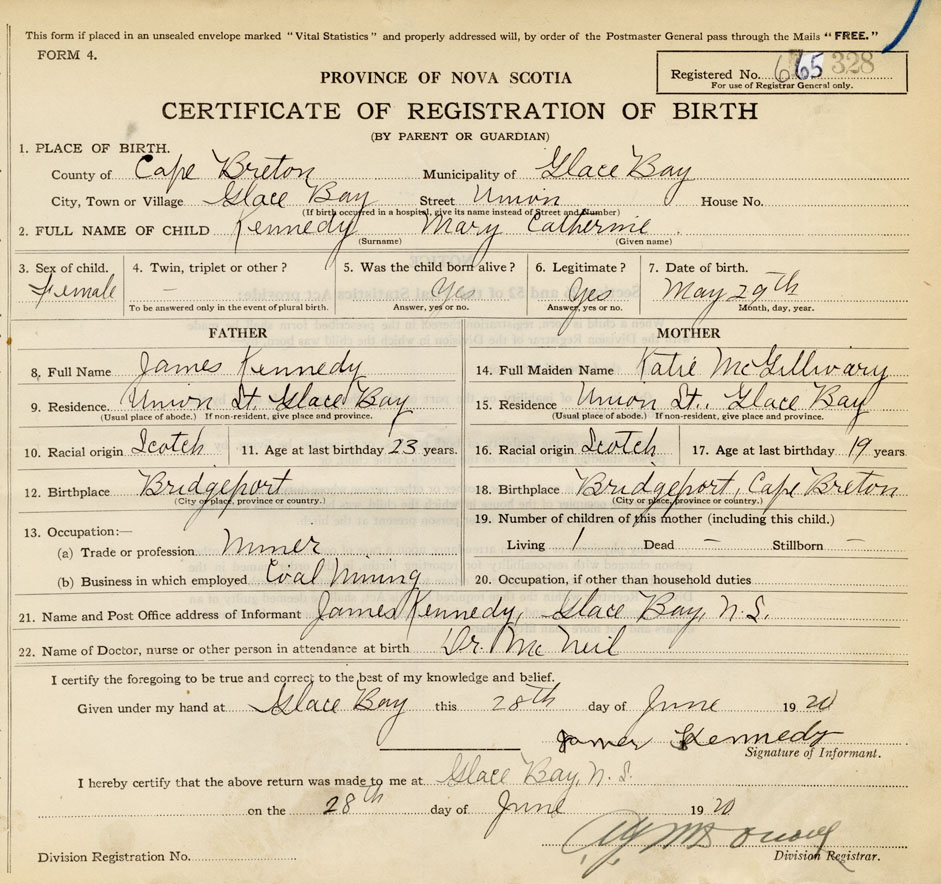 This form if placed in an unsealed envelope marked "Vital Statistics" and properly addressed will, by order of the Postmaster General pass through the Mails "FREE."
FORM 4.
Registered No. 65 328
For use of Registrar General only.
PROVINCE OF NOVA SCOTIA
CERTIFICATE OF REGISTRATION OF BIRTH
(BY PARENT OR GUARDIAN)
1. PLACE OF BIRTH.
County of Cape Breton Municipality of Glace Bay
City, Town or Village Glace Bay Street Union House No.
(If birth occurred in a hospital, give its name instead of Street and Number)
2. FULL NAME OF CHILD Kennedy Mary Catherine
(Surname) (Given name)
3. Sex of child. 4. Twin, triplet or other? 5. Was the child born alive? 6. Legitimate? 7. Date of birth.
Female — Yes Yes May 29th
To be answered only in the event of plural birth. Answer, yes or no. Answer, yes or no. Month, day, year.
FATHER MOTHER
8. Full Name James Kennedy 14. Full Maiden Name Katie McGillivary
9. Residence. Union St. Glace Bay 15. Residence Union St., Glace Bay
(Usual place of abode.) If non-resident, give place and province. (Usual place of abode.) If non-resident, give place and province.
10. Racial origin Scotch 11. Age at last birthday 23 years. 16. Racial origin Scotch 17. Age at last birthday 19 years
12. Birthplace Bridgeport 18. Birthplace Bridgeport, Cape Breton
(City or place, province or country.) (City or place, province or country.)
13. Occupation:— 19. Number of children of this mother (including this child.)
(a) Trade or profession Miner Living 1 Dead — Stillborn —
(b) Business in which employed Coal Mining 20. Occupation, if other than household duties
21. Name and Post Office address of Informant James Kennedy, Glace Bay, N.S.
22. Name of Doctor, nurse or other person in attendance at birth Dr. McNeil
I certify the foregoing to be true and correct to the best of my knowledge and belief.
Given under my hand at Glace Bay this 28th day of June 1920
James Kennedy
Signature of Informant.
I hereby certify that the above return was made to me at Glace Bay, N.S.
on the 28th day of June 1920
Division Registration No. Division Registrar.